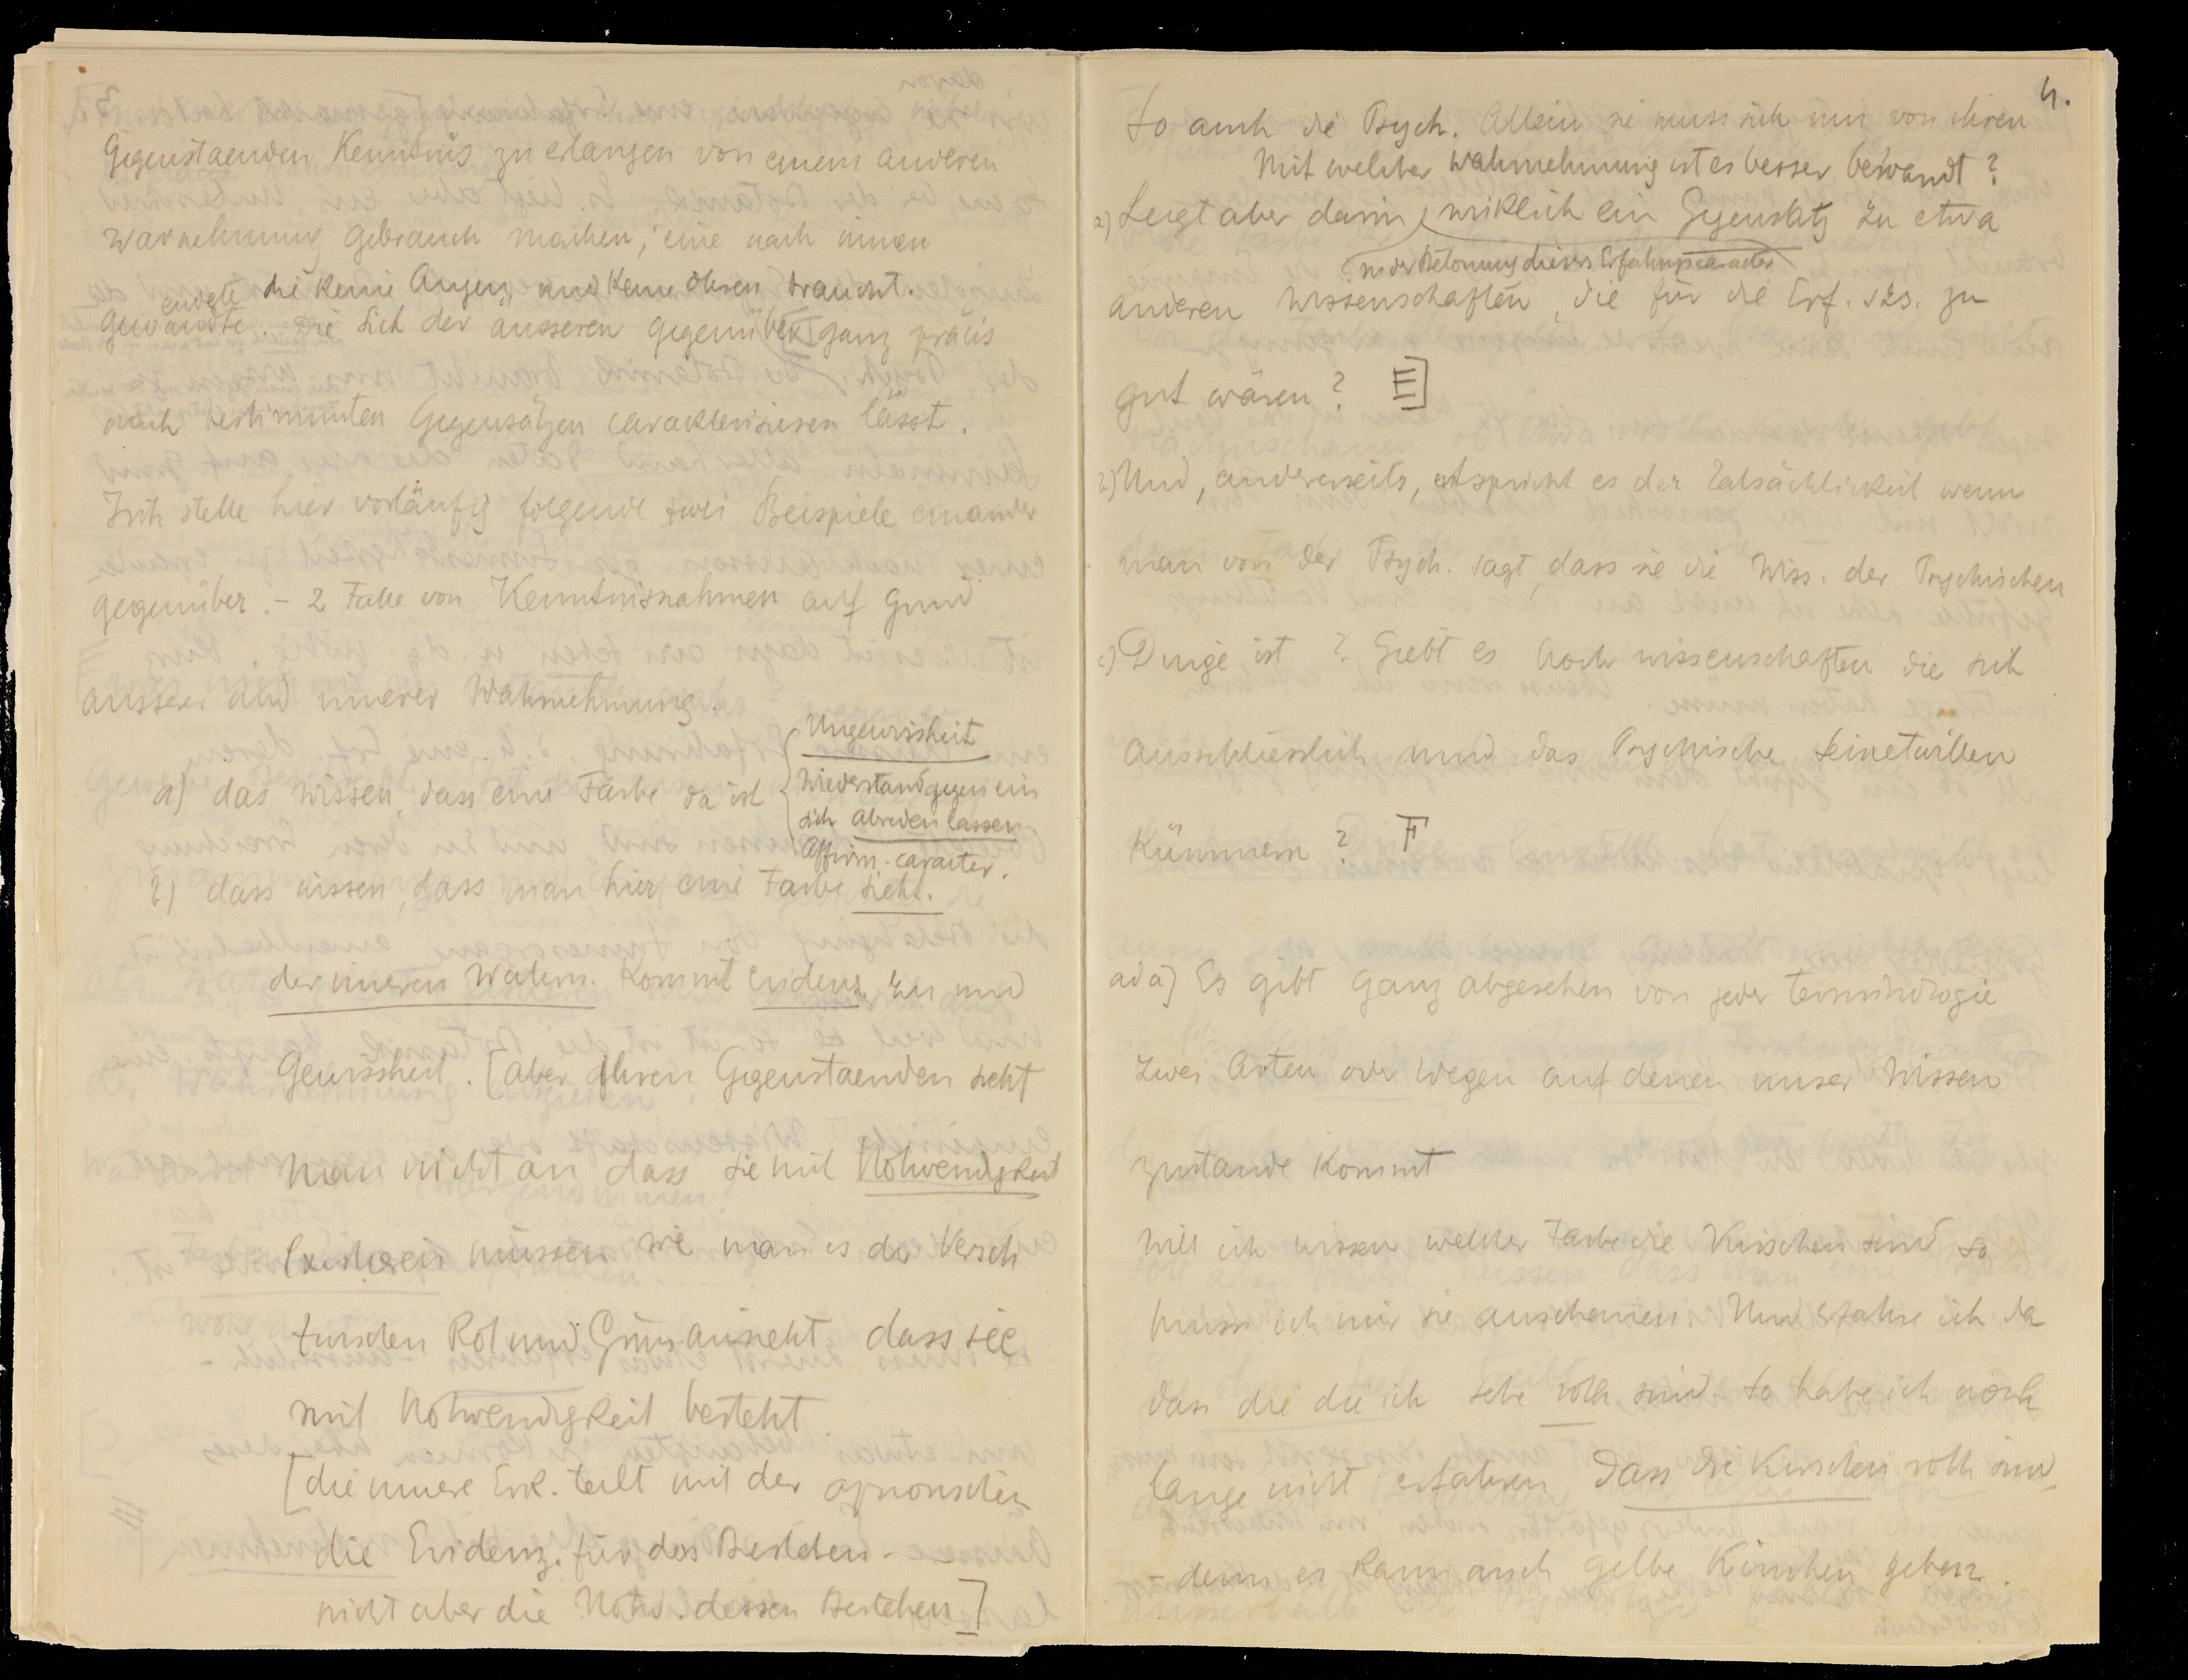 Gegenstaenden Kenntnis zu erlangen von einem anderen
Warnehmung gebrauch machen, eine nach innen
die keine Augen und keine Ohren braucht.
gewandte. Die sich der äusseren gegenüber ganz präcis
nach bestimmten Gegensätzen carakterisieren lässt.
Ich stelle hier vorläufig folgende zwei Beispiele einander
gegenüber. – 2 Falle von Kenntnisnahmen auf Grund
äusserer und innerer Wahrnehmung.
Ungewissheit
a) das Wissen, dass eine Farbe da ist
Wiederstand gegen ein
sich abreden lassen.
Affirm. caracter.
2) dass wissen, dass man hier eine Farbe sieht.
der inneren Wahrn. kommt Evidenz zu und
Gewissheit. [aber ihren Gegenstaenden sieht
man nicht an dass sie mit Notwendigkeit
existieren müssen wie man es der Versch
zwischen Rot und Grün ansieht dass sie
mit Notwendigkeit besteht
[die innere Erk. teilt mit der apriorischen
die Evidenz. für das Bestehen –
nicht aber die Notw. dessen Bestehen]
4.
so auch die Psych. Allein sie muss sich um von ihren
Mit welcher Wahrnehmung ist es besser bewandt?
a) Liegt aber darin wirklich ein Gegensatz zu etwa
in der Betonung dieses Erfahrungscaracter
anderen Wissenschaften, die für die Erf. szs. zu
gut wären? E]
2) Und, andererseits, entspricht es der Tatsächlichkeit wenn
man von der Psych. sagt, dass sie die Wiss. der Psychischen
c) Dinge ist? Giebt es noch wissenschaften die sich
ausschliesslich um das Psychische seinetwillen
Kümmern? F
ad a) Es gibt ganz abgesehen von jeder Terminologie
zwei Arten oder Wegen auf denen unser Wissen
zustande kommt
Will ich wissen welcher Farbe die Kirschen sind so
muss ich mir sie anschauen. Und erfahre ich da
dass die die ich sehe roth sind so habe ich noch
lange nicht erfahren dass die Kirschen roth sind
– denn es kann auch gelbe Kirschen geben.